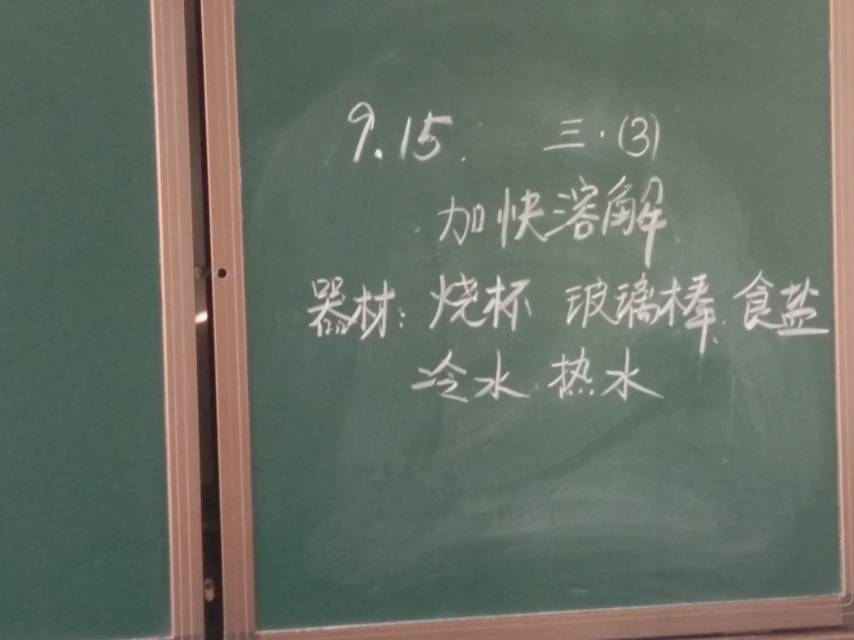 9.15. 三·(3)
加快溶解
器材: 烧杯 玻璃棒、食盐
冷水、热水